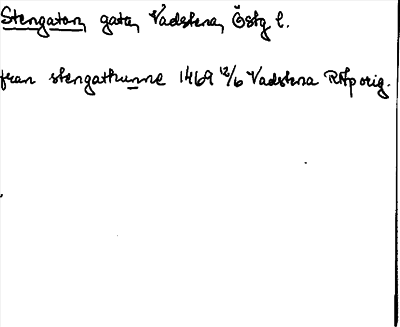 Stengatan, gata, Vadstena, Östg l.
fran stengathunne 1469 12/6 Vadstena RAp orig.